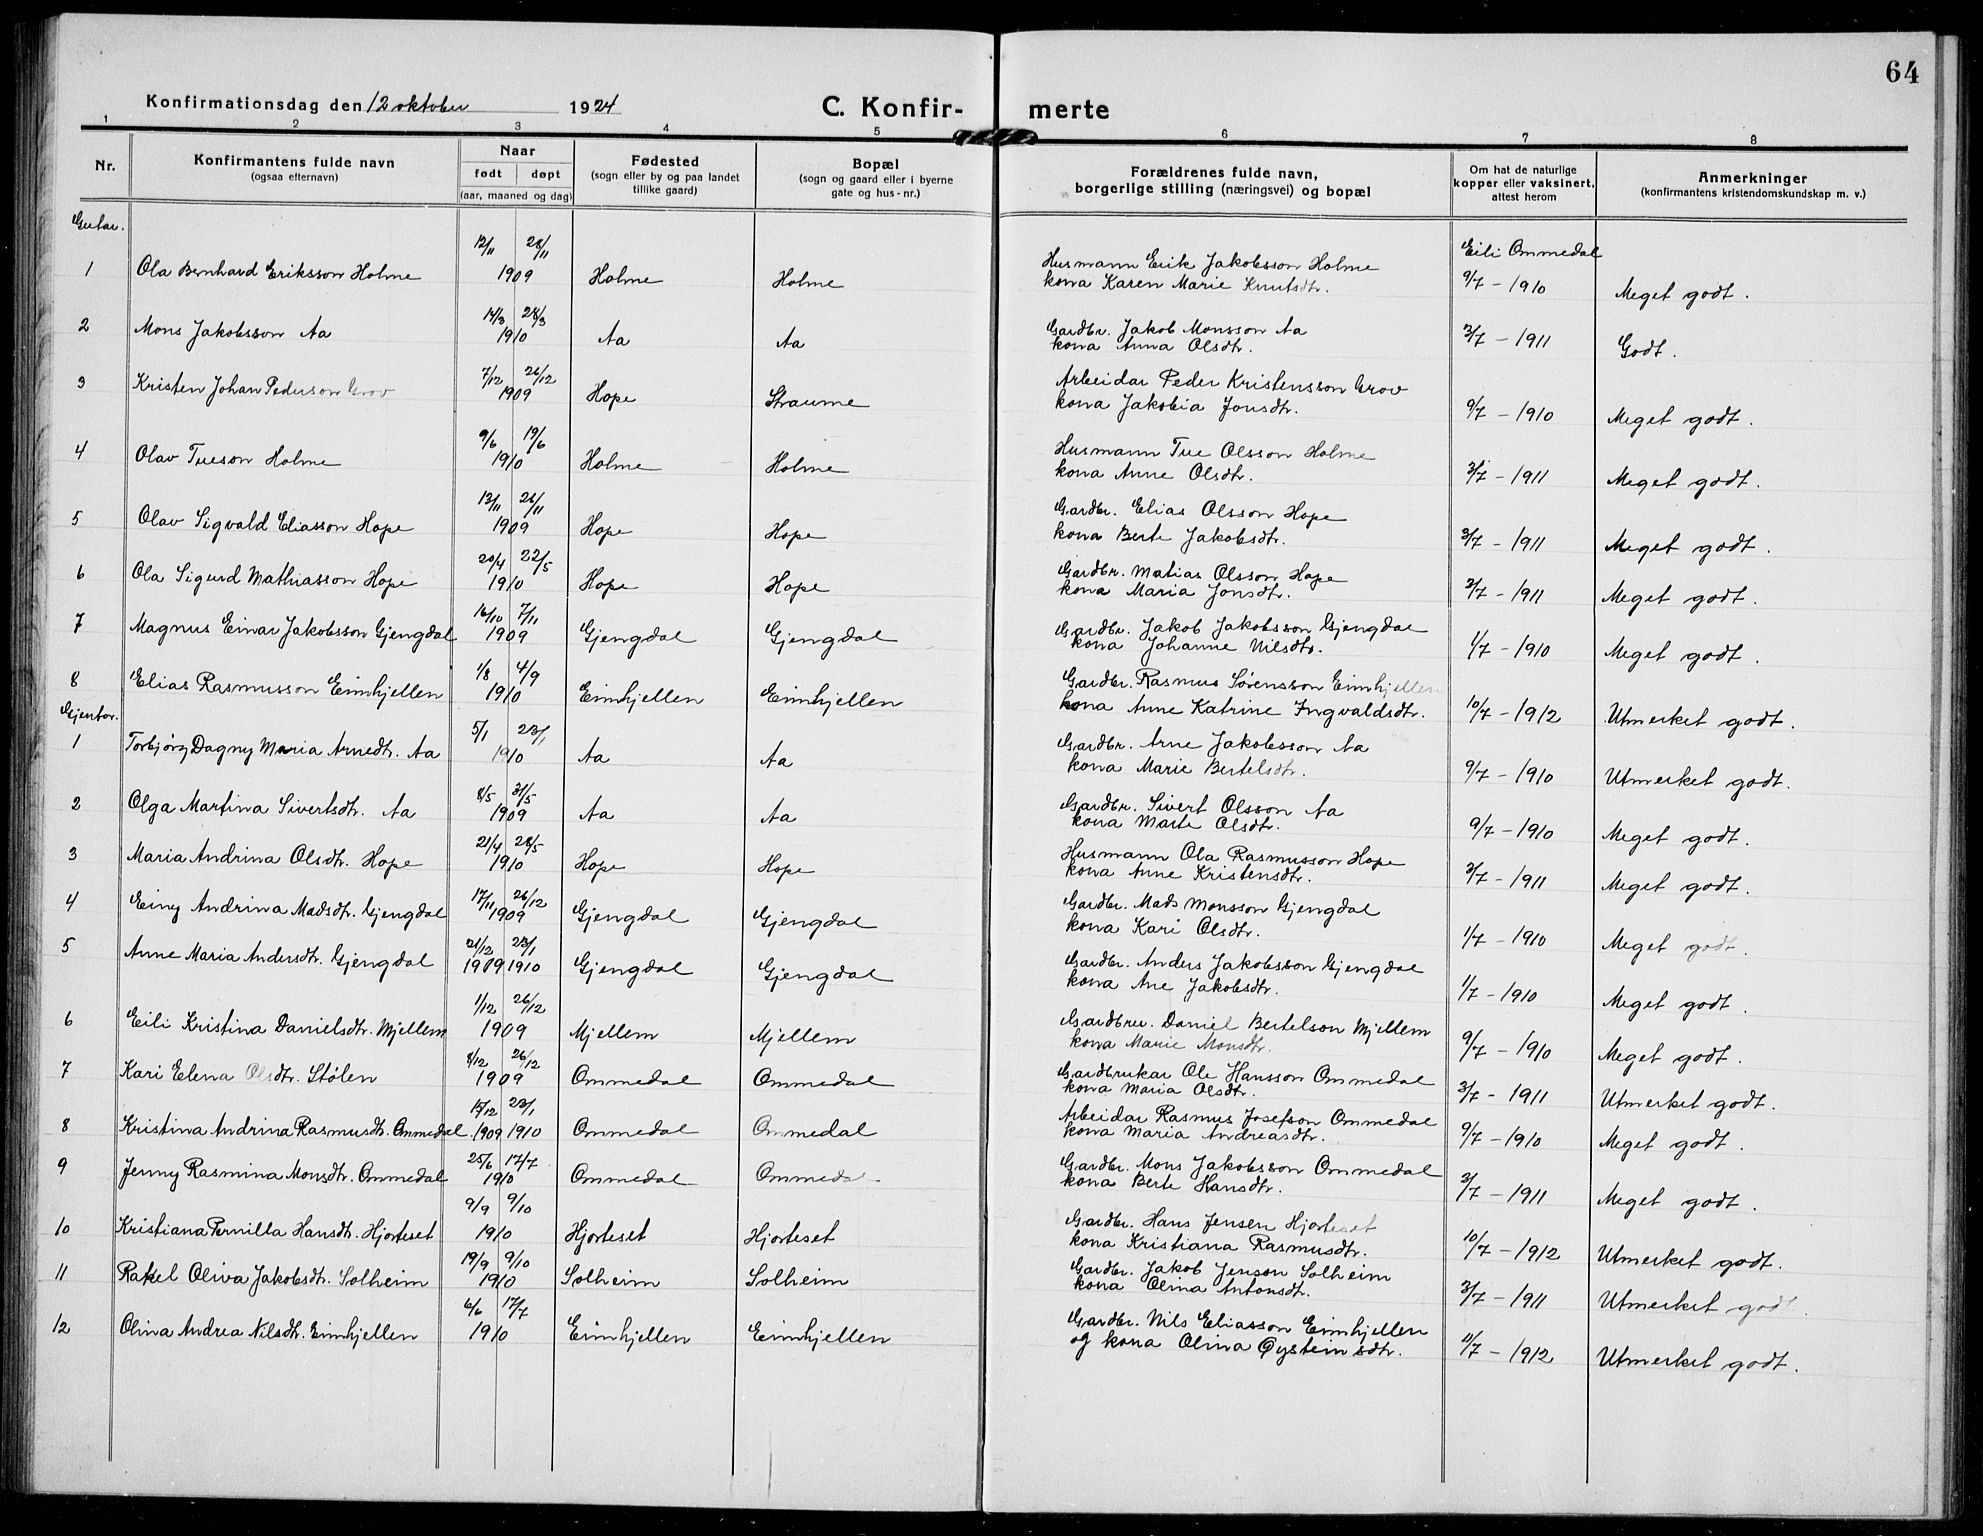 64
Konfirmationsdag den 12 oktober 1924 C. Konfir- merte
1 2 3 4 5 6 7 8
Nr. Konfirmantens fulde navn (ogsaa efternavn) Naar født døpt (aar, maaned og dag) Fødested (sogn eller by og paa landet tillike gaard) Bopæl (sogn og gaard eller i byerne gate og hus-nr.) Forældrenes fulde navn, borgerlige stilling (næringsvei) og bopæl Om hat de naturlige kopper eller vaksinert, attest herom Anmerkninger (konfirmantens kristendomskundskap m. v.)
Gutar.
12/11 28/11 Husmann Erik Jakobsson Holme Eili Ommedal
1 Ola Bernhard Eriksson Holme 1909 Holme Holme kona Karen Marie Knutsdtr. 9/7 - 1910 Meget godt.
14/3 28/3 Gardbr. Jakob Monsson Aa
2 Mons Jakobsson Aa 1910 Aa Aa kona Anna Olsdtr. 3/7 - 1911 Godt.
7/12 26/12 Arbeidar Peder Kristensson Grov
3 Kristen Johan Pederson Grov 1909 Hope Straume kona Jakobia Jonsdtr. 9/7 - 1910 Meget godt.
9/6 19/6 Husmann Tue Olsson Holme
4 Olav Tueson Holme 1910 Holme Holme kona Anne Olsdtr. 3/7 - 1911 Meget godt.
13/11 28/11 Gardbr. Elias Olsson Hope
5 Olav Sigvald Eliasson Hope 1909 Hope Hope kona Berte Jakobsdtr. 3/7 - 1911 Meget godt.
20/4 22/5 Gardbr. Matias Olsson Hope
6 Ola Sigurd Mathiasson Hope 1910 Hope Hope kona Maria Jonsdtr. 3/7 - 1911 Meget godt.
16/10 7/11 Gardbr. Jakob Jakobsson Gjengdal
7 Magnus Einar Jakobsson Gjengdal 1909 Gjengdal Gjengdal kona Johanne Nilsdtr. 1/7 - 1910 Meget godt.
1/8 4/9 Gardbr. Rasmus Sørensson Eimhjellen
8 Elias Rasmusson Eimhjellen 1910 Eimhjellen Eimhjellen kona Anne Katrine Ingvaldsdtr. 10/7 - 1912 Utmerket godt.
Gjentor.
5/1 23/1 Gardbr. Arne Jakobsson Aa
1 Torbjørg Dagny Maria Arnedtr. Aa 1910 Aa Aa kona Marie Bertelsdtr. 9/7 - 1910 Utmerket godt.
8/5 31/5 Gardbr. Sivert Olsson Aa
2 Olga Martina Sivertsdtr. Aa 1909 Aa Aa kona Marte Olsdtr. 9/7 - 1910 Meget godt.
21/4 28/5 Husmann Ola Rasmusson Hope
3 Maria Andrina Olsdtr. Hope 1910 Hope Hope kona Anne Kristensdtr. 3/7 - 1911 Meget godt.
17/11 26/12 Gardbr. Mads Monsson Gjengdal
4 Einy Andrina Madsdtr. Gjengdal 1909 Gjengdal Gjengdal kona Kari Olsdtr. 1/7 - 1910 Meget godt.
21/12 23/1 Gardbr. Anders Jakobsson Gjengdal
5 Anne Maria Andersdtr. Gjengdal 1909 1910 Gjengdal Gjengdal kona Ane Jakobsdtr. 1/7 - 1910 Meget godt.
1/12 26/12 Gardbrur. Daniel Bertelson Mjellem
6 Eili Kristina Danielsdtr. Mjellem 1909 Mjellem Mjellem kona Marie Monsdtr. 9/7 - 1910 Meget godt.
8/12 26/12 Gardbrukar Ole Hansson Ommedal
7 Kari Elena Olsdtr. Stølen 1909 Ommedal Ommedal kona Maria Olsdtr. 3/7 - 1911 Utmerket godt.
15/12 23/1 Arbeidar Rasmus Josefson Ommedal
8 Kristina Andrina Rasmusdtr. Ommedal. 1909 1910 Ommedal Ommedal kona Maria Andreasdtr. 9/7 - 1910 Meget godt.
25/6 17/7 Gardbr. Mons Jakobsson Ommedal
9 Jenny Rasmina Monsdtr. Ommedal 1910 Ommedal Ommedal kona Berte Hansdtr. 3/7 - 1911 Meget godt.
9/9 9/10 Gardbr. Hans Jensen Hjorteset
10 Kristiana Pernilla Hansdtr. Hjorteset 1910 Hjorteset Hjorteset kona Kristiana Rasmusdtr. 10/7 - 1912 Utmerket godt.
19/9 9/10 Gardbr. Jakob Jenson Solheim
11 Rakel Oliva Jakobsdtr. Solheim 1910 Solheim Solheim kona Olina Antonsdtr. 3/7 - 1911 Utmerket godt.
6/6 17/7 Gardbr. Nils Eliasson Eimhjellen
12 Olina Andrea Nilsdtr. Eimhjellen 1910 Eimhjellen Eimhjellen og kona Olina Øysteinsdtr. 11/7 - 1912 Utmerket godt.